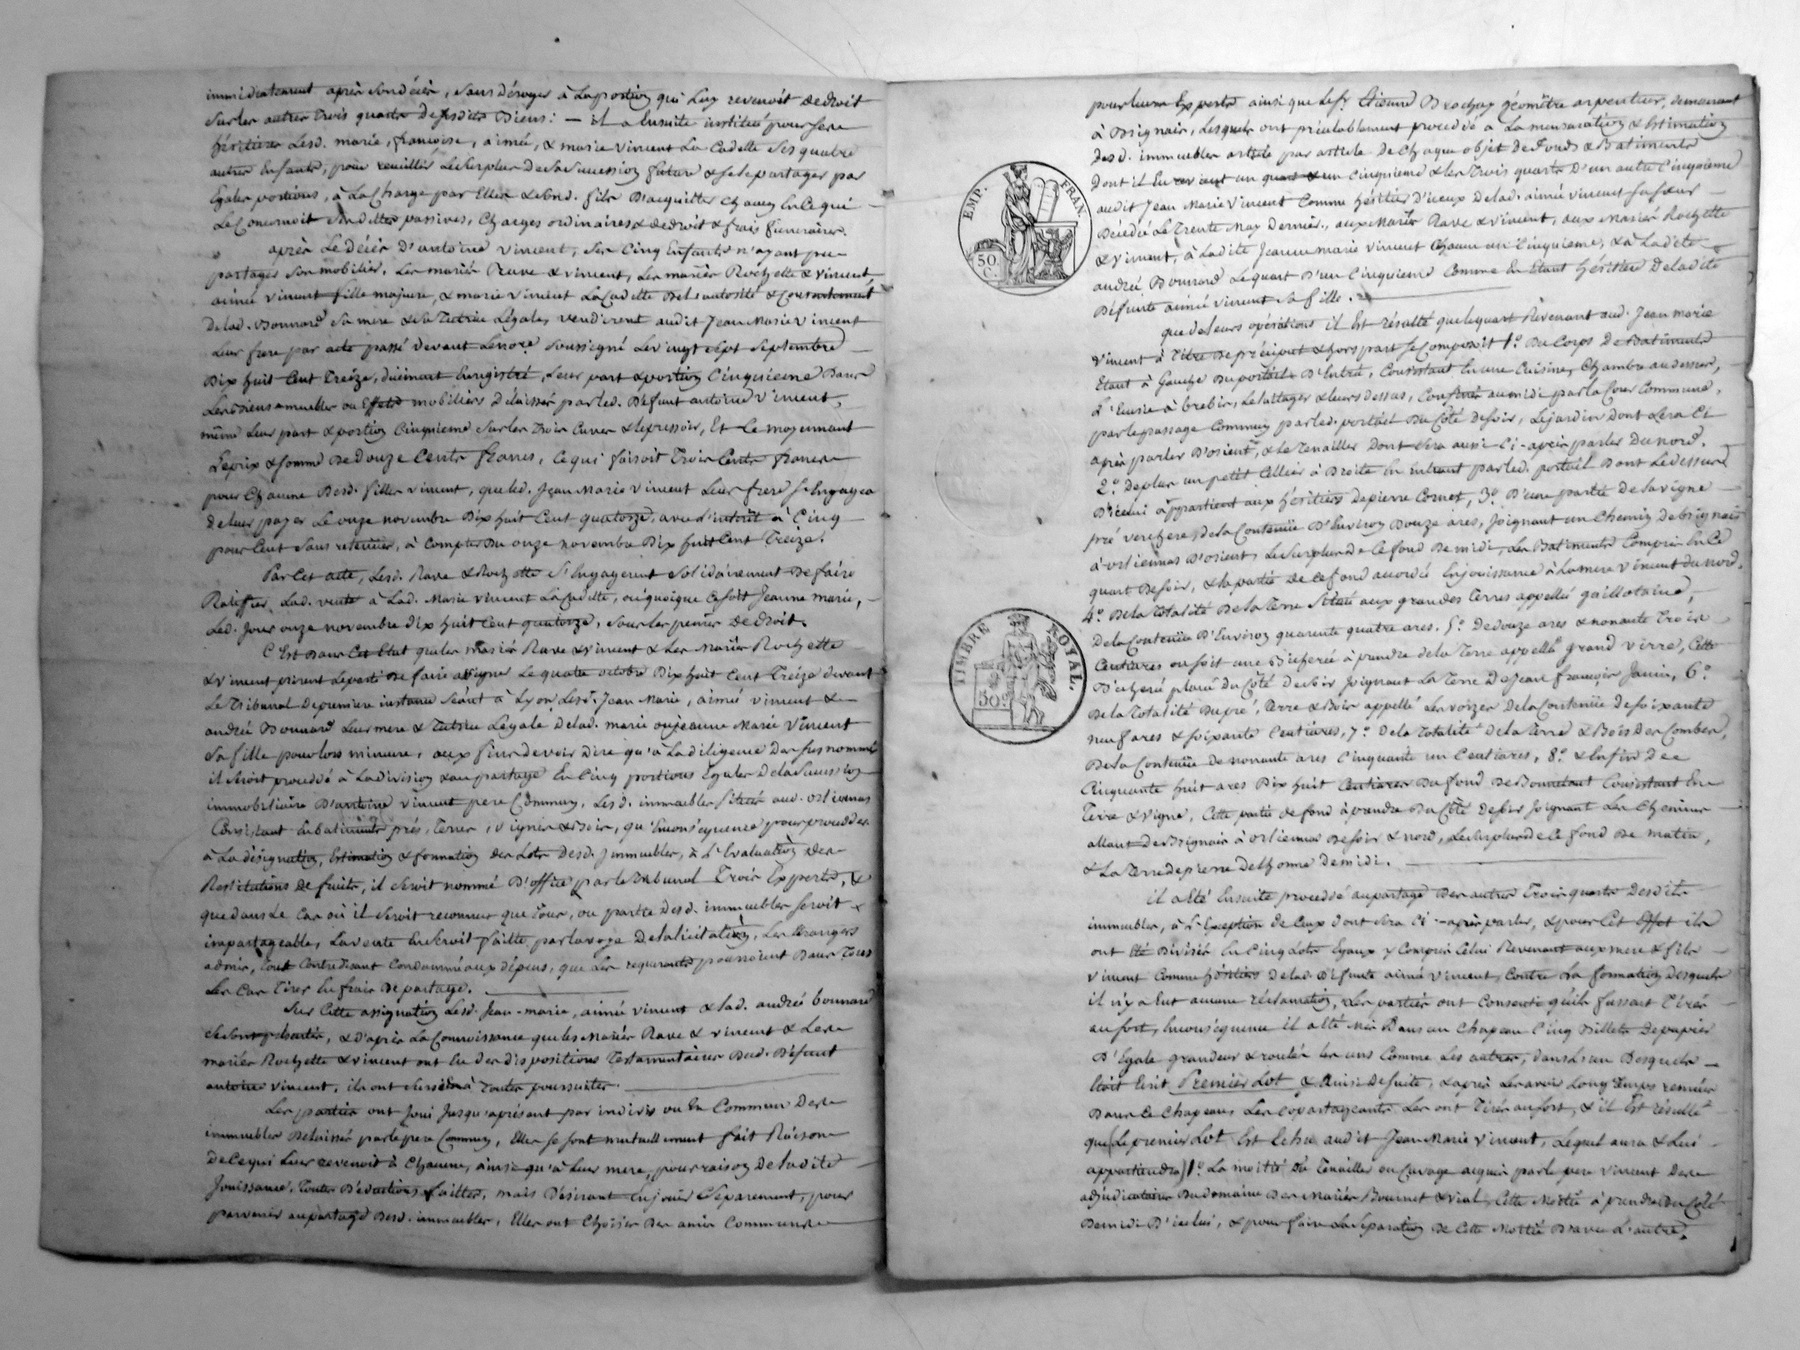 immédiatement après son décès, sans déroger à la portion qui luy revenoit de droit
sur les autres trois quarts desdits Biens : — il a Ensuite institué pour ses
héritiers lesd. marie, françoise, aimée, & marie vincent La Cadette ses quatre
autres Enfants, pour recuillir le surplus de sa succession future & se le partager par
Egales portions, à la Charge par Elles & led. fils D'acquitter Chacun En ce qui
le Concernoit ses dettes passives, Charges ordinaires & de droit & frais funéraires.
après le Décès D'antoine Vincent, ses Cinq Enfants n'ayant pu
partager son mobilier, les mariés Rave & vincent, les mariés Rochette & vincent,
aimée vincent fille majeure, & marie vincent La Cadette De l'autorité & Consentement
de lad. Bonnard sa mere & sa Tutrice Légale, vendirent audit Jean Marie Vincent
leur frere par acte passé devant le nore soussigné le vingt sept Septembre
Dix huit Cent Treize, düement Enregistré, leur part & portion Cinquieme Dans
les Biens meubles ou Effets mobiliers Délaissés par led. Défunt antoine Vincent,
même leur part & portion Cinquieme sur les Trois Cuves & le pressoir, Et Ce moyennant
le prix & somme De Douze Cents francs, Ce qui faisoit Trois Cents francs
pour Chacune Desd. filles vincent, que led. Jean Marie Vincent Leur frere s'Engagea
de leur payer le onze novembre Dix huit Cent quatorze, avec l'intérêt à Cinq
pour Cent sans retenue, à Compter Du onze novembre Dix huit Cent Treize.
Par Cet acte, Lesd. Rave & Rochette s'Engagerent solidairement De faire
Ratifier Lad. vente à Lad. Marie vincent La Cadette, ou quoique Ce soit Jeanne marie,
Led. Jour onze novembre dix huit Cent quatorze, sous les peines De Droit.
C'Est Dans Cet Etat que les mariés Rave & vincent & Les Mariés Rochette
& vincent prirent le parti De faire assigner Le quatre octobre Dix huit Cent Treize devant
Le Tribunal De premiere instance séant à Lyon, Lesd. Jean Marie, aimée vincent &
andrée Bonnard leur mere & Tutrice Légale de lad. marie ou jeanne Marie Vincent
sa fille pour lors mineure, aux fins de voir dire qu'à la diligence Des sus nommés
il seroit procédé à la division & au partage En Cinq portions Egales De la succession
immobiliaire D'antoine vincent pere Commun, Lesd. immeubles Situés aud. orlienas
Consistant En batiments, prés, Terres, vignes & Bois, qu'En conséquence pour procéder
à La désignation, Estimation & formation des Lots Desd. Immeubles, à L'Evaluation Des
Restitutions De fruits, il seroit nommé D'office par le Tribunal Trois Experts, &
que dans Le Cas où il seroit reconnu que Tous, ou partie Desd. immeubles seroit
impartageable, La vente En seroit faitte par la voye De la licitation, Les Etrangers
admis, Tout Contredisant Condamné aux dépens, que Les requerants pourroient Dans Tous
Les Cas Tirer En frais De partage.
Sur Cette assignation Lesd. Jean-marie, aimée vincent & lad. andrée bonnard
& D'après la Connoissance que les Mariés Rave & vincent & Les
mariés Rochette & vincent ont Eu des dispositions Testamentaires Dud. Défunt
antoine vincent, ils ont Cessé à Toutes poursuites.
Les parties ont Joui Jusqu'à présent par indivis ou En Commun Des
immeubles Delaissés par le pere Commun, Elles se sont mutuellement fait Raison
de Ce qui leur revenoit à Chacune, ainsi qu'à leur mere, pour raison De ladite
Jouissance, Toutes Déductions faittes, mais Désirant En jouir Séparement, pour
parvenir au partage Desd. immeubles, Elles ont Choisi Des amis Communs
EMP. FRAN.
50.
C.
TIMBRE ROYAL.
50.
pour leurs Experts ainsi que le sr. Etienne Brochay géomètre arpenteur, demeurant
à Brignais, Lesquels ont préalablement procédé à La mensuration & Estimation
desd. immeubles article par article de Chaque objet de fonds & Batiments
Dont il En revient un quart & un Cinquieme & les Trois quarts D'un autre Cinquieme
audit Jean Marie Vincent Comme héritier D'iceux de lad. aimée vincent sa sœur
Décédée Le Trente May Dernier, aux Mariés Rave & vincent, aux Mariés Rochette
& vincent, à Ladite Jeanne marie vincent Chacun un Cinquieme, & à Ladite
andrée Bonnard Le quart D'un Cinquieme Comme En Etant héritiere De ladite
Défunte aimée vincent sa fille.
que de leurs opérations il Est résulté que le quart Revenant aud. Jean marie
vincent à Titre De préciput & hors part se Composoit 1.° Du Corps De Batiments
Etant à Gauche Du portail D'Entrée, Consistant En une Cuisine, Chambre au dessus,
L'Ecurie à brebis, & leurs dessus, Confinés au midi par la Cour Commune,
par le passage Commun par led. portail Du Côté De soir, Le jardin Dont sera Ci
après parler D'orient, & le Tenailler Dont sera aussi Ci-après parler Du nord.
2.° De plus un petit Cellier à Droite En Entrant par led. portail Dont le dessus
D'icelui appartient aux héritiers De pierre Cornet, 3.° D'une partie de la vigne
pré verchere, de la Contenüe D'Environ Douze ares, Joignant un Chemin de brignais
à orlienas D'orient, Le surplus de Ce fond De midi, Les Batiments Compris En Ce
quart De soir, & la partie de Ce fond accordée En jouissance à la mere vincent du nord.
4.° De la Totalité De la Terre Située aux grandes Terres appellée gaillotaine,
de la Contenüe D'Environ quarente quatre ares. 5.° De douze ares & nonante Trois
Centiares ou soit une Bicherée à prendre de la Terre appellée grand virre, Cette
Bicherée placée Du Côté De soir Joignant La Terre De Jean François Janin, 6.°
De la Totalité Du pré, Terre & Bois appellé Les voizes De la Contenüe De soixante
neuf ares & soixante Centiares, 7.° De la Totalité de la Terre & Bois Des Combes,
De la Contenüe De nonante ares Cinquante un Centiares, 8.° & Enfin De
Cinquante huit ares Dix huit Centiares Du fond De Consistant En
Terre & Vigne, Cette partie de fond à prendre Du Côté de soir Joignant Les Chemins
allant de Brignais à orlienas De soir & nord, Le surplus de Ce fond De matin,
& La Terre de pierre Delhorme De midi.
il a Eté Ensuite procédé au partage Des autres Trois quarts Desdits
immeubles, à l'Exception de Ceux dont sera Ci-après parler, & pour Cet Effet ils
ont Eté Divisés En Cinq Lots Egaux y Compris Celui Revenant aux mere & fils
vincent Comme héritiers de lad. Défunte aimée vincent, Contre La formation desquels
il n'y a Eut aucune réclamation, & Les parties ont Consenti qu'ils fussent Tirés
au sort, En conséquence il a Eté Mis Dans un Chapeau Cinq Billets De papier
D'Egale grandeur & roulés les uns Comme Les autres, dans L'un Desquels
Etoit Ecrit Premier Lot & Ainsi De suite, & après Les avoir Long temps remués
Dans Ce Chapeau, Les Copartageants Les ont Tirés au sort, & il Est résulté
que Le premier Lot Est Echu audit Jean Marie Vincent, Lequel aura & Lui
appartiendra 1.° La moitié Du Tenailler ou Cuvage acquis par le pere Vincent Des
adjudicataires Du domaine Des Mariés Bournet & vial, Cette Moitié à prendre Du Côté
De midi D'icelui, & pour faire La Séparation de Cette Moitié D'avec L'autre,